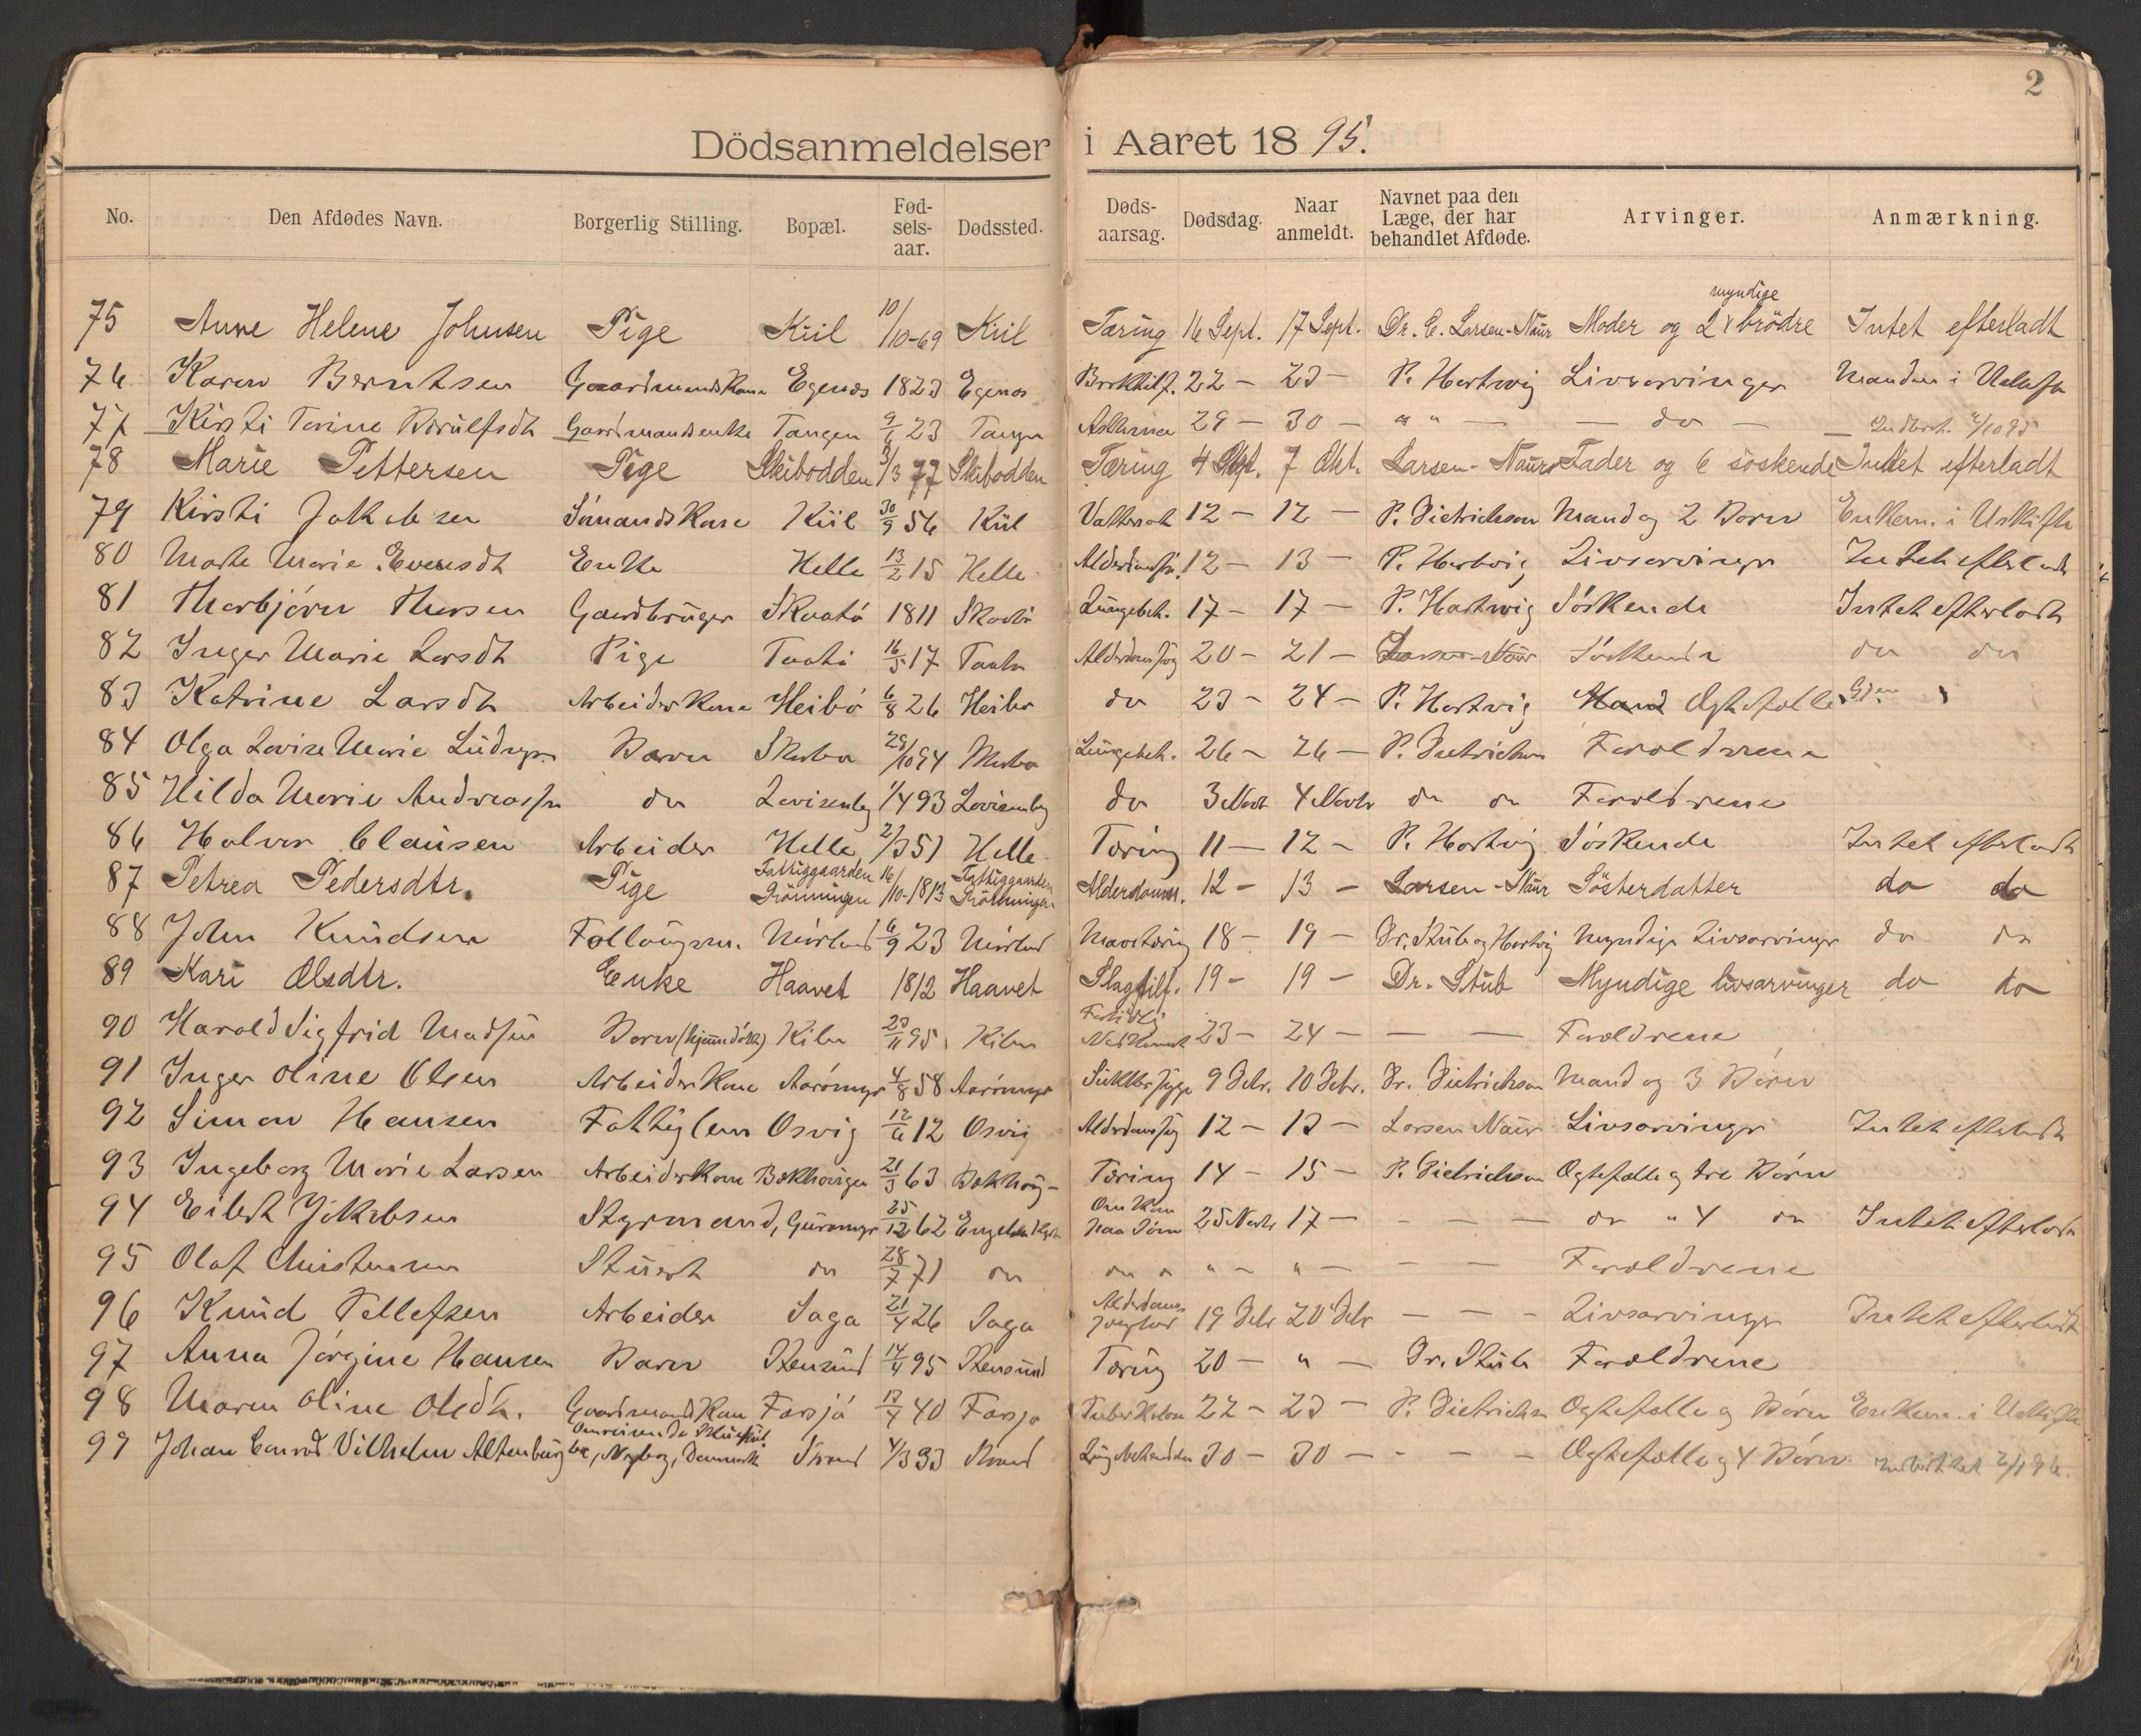 2
Dödsanmeldelser i Aaret 1895.
No. Den Afdødes Navn. Borgerlig Stilling. Bopæl. Fød-sels-aar. Dødssted. Døds-aarsag. Dødsdag. Naar anmeldt. Navnet paa den Læge, der har behandlet Afdøde. Arvinger. Anmærkning.
75 Anne Helene Johnsen Pige Kiil 10/10-69 Kiil Tæring 16 Sept. 17 Sept. Dr. C. Larsen-Naur Moder og 2 myndige brödre Intet efterladt
76 Karen Berntsen Gaardmandskone Egenæs 1823 Egenæs 22 – 23 – P. Hartvig Livsarvinger Manden i
77 Kirsti Tarine Gaardmandsenke Tangen 9/6 23 Tangen Asthma 29 – 30 – " " – – do –
78 Marie Pettersen Pige Skibodden 3/3 77 Skibodden Tæring 4 Okt. 7 Okt. Larsen-Naur Fader og 6 söskende Intet efterladt
79 Kirsti Jakobsen Sömandskone Kiil 30/9 56 Kiil 12 – 12 – P. Dietrichson Mand og 2 Børn Enkem. i Uskifte
80 Marte Marie Evensdt Enke Helle 13/2 15 Helle 12 – 13 – P. Hartvig Livsarvinger Intet efterladt
81 Thorbjörn Gaardbruger Skaatö 1811 Skaatö Lungebet. 17 – 17 – P. Hartvig Söskende Intet efterladt
82 Inger Marie Larsdt Pige Taatö 16/5 17 Taatö 20 – 21 – Larsen-Naur Söskende do do
83 Katrine Larsdt Arbeiderkone Heibö 6/8 26 Heibö do 23 – 24 – P. Hartvig Mand Ægtefælle
84 Olga Lovise Marie Barn 28/10 94 Lungebet. 26 – 26 – P. Dietrichson Forældrene
85 Hilda Marie Andreassen do Lovisenberg 1/4 93 Lovisenberg do 3 Novbr 4 Novbr do do Forældrene
86 Halvor Clausen Arbeider Helle 51 Helle Tæring 11 – 12 – P. Hartvig Söskende Intet efterladt
87 Petrea Pedersdtr. Pige Fattiggaarden Rönningen 16/10-1813 Fattiggaarden Rönningen Alderdomss. 12 – 13 – Larsen-Naur Sösterdatter do do
88 John Knudsen 6/9 23 18 – 19 – Dr. Stub og Hartvig Myndige Livsarvinger do do
89 Kari Olsdtr. Enke Haavet 1812 Haavet Slagtilf. 19 – 19 – Dr. Stub Myndige livsarvinger do do
90 Harald Sigfrid Madsen Barn (hjemmedöbt) Kilen 23/11 95 Kilen 23 – 24 – – – Forældrene
91 Inger Oline Olsen Arbeiderkone Aarömyr 4/8 58 Aarömyr 9 Debr. 10 Debr. Dr. Dietrichson Mand og 3 Börn
92 Simon Hansen Fattiglem Osvig 12/6 12 Osvig 12 – 13 – Larsen Naur Livsarvinger Intet efterladt
93 Ingeborg Marie Larsen Arbeiderkone 21/3 63 Tæring 14 – 15 – P. Dietrichson Ægtefælle og tre Börn
94 Eilert Jakobsen Styrmand, 25/12 62 Omkom paa Söen 25 Novbr 17 – – – – do " 4 do Intet efterladt
95 Olaf Christensen Stuert do 28/7 71 do do " " – " – – – Forældrene
96 Knud Tellefsen Arbeider Saga 21/4 26 Saga 19 Debr 20 Debr – – – Livsarvinger Intet efterladt
97 Anna Jörgine Hansen Barn Stensund 14/4 95 Stensund Tæring 20 – " – Dr. Stub Forældrene
98 Maren Oline Olsdt. Gaardmandskone Farsjö 40 Farsjö 22 – 23 – P. Dietrichson Ægtefælle og Börn Enkem. i Uskifte
99 Johan Conrad Vilhelm Altenburg Nyborg, Danmark Lungebetændelse 30 – 30 – – – – Ægtefælle og 4 Börn